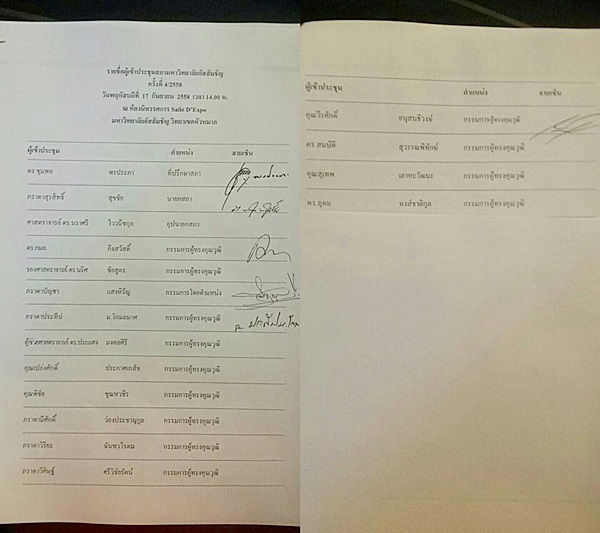 รายชื่อผู้เข้าประชุมสภามหาวิทยาลัยอัสสัมชัญ
ครั้งที่ 4/2558
วันพฤหัสบดีที่ 17 กันยายน 2558 เวลา 14.00 น.
ณ ห้องนิทรรศการ Salle D'Expo
มหาวิทยาลัยอัสสัมชัญ วิทยาเขตหัวหมาก
ผู้เข้าประชุม ตำแหน่ง ลายเซ็น
ดร.ชุมพล พรประภา ที่ปรึกษาสภา
ภราดาสุรสิทธิ์ สุขชัย นายกสภา
ศาสตราจารย์ ดร.นราศรี ไววนิชกุล อุปนายกสภา
ดร.กมล กิจสวัสดิ์ กรรมการผู้ทรงคุณวุฒิ
รองศาสตราจารย์ ดร.นริศ ชัยสูตร กรรมการผู้ทรงคุณวุฒิ
ภราดาบัญชา แสงหิรัญ กรรมการโดยตำแหน่ง
ภราดาประทีป ม.โกมลมาศ กรรมการผู้ทรงคุณวุฒิ
ผู้ช่วยศาสตราจารย์ ดร.ประแสง มงคลศิริ กรรมการผู้ทรงคุณวุฒิ
คุณเปล่งศักดิ์ ประกาศเภสัช กรรมการผู้ทรงคุณวุฒิ
คุณพิชัย ชุณหวชิร กรรมการผู้ทรงคุณวุฒิ
ภราดามีศักดิ์ ว่องประชานุกูล กรรมการผู้ทรงคุณวุฒิ
ภราดาวิริยะ ฉันทวโรดม กรรมการผู้ทรงคุณวุฒิ
ภราดาวิศิษฐ์ ศรีวิชัยรัตน์ กรรมการผู้ทรงคุณวุฒิ
ผู้เข้าประชุม ตำแหน่ง ลายเซ็น
คุณวีรศักดิ์ อนุสนธิวงษ์ กรรมการผู้ทรงคุณวุฒิ
ดร.สมบัติ สุวรรณพิทักษ์ กรรมการผู้ทรงคุณวุฒิ
คุณสุเทพ เลาหะวัฒนะ กรรมการผู้ทรงคุณวุฒิ
ดร.อุดม หงส์ชาติกุล กรรมการผู้ทรงคุณวุฒิ